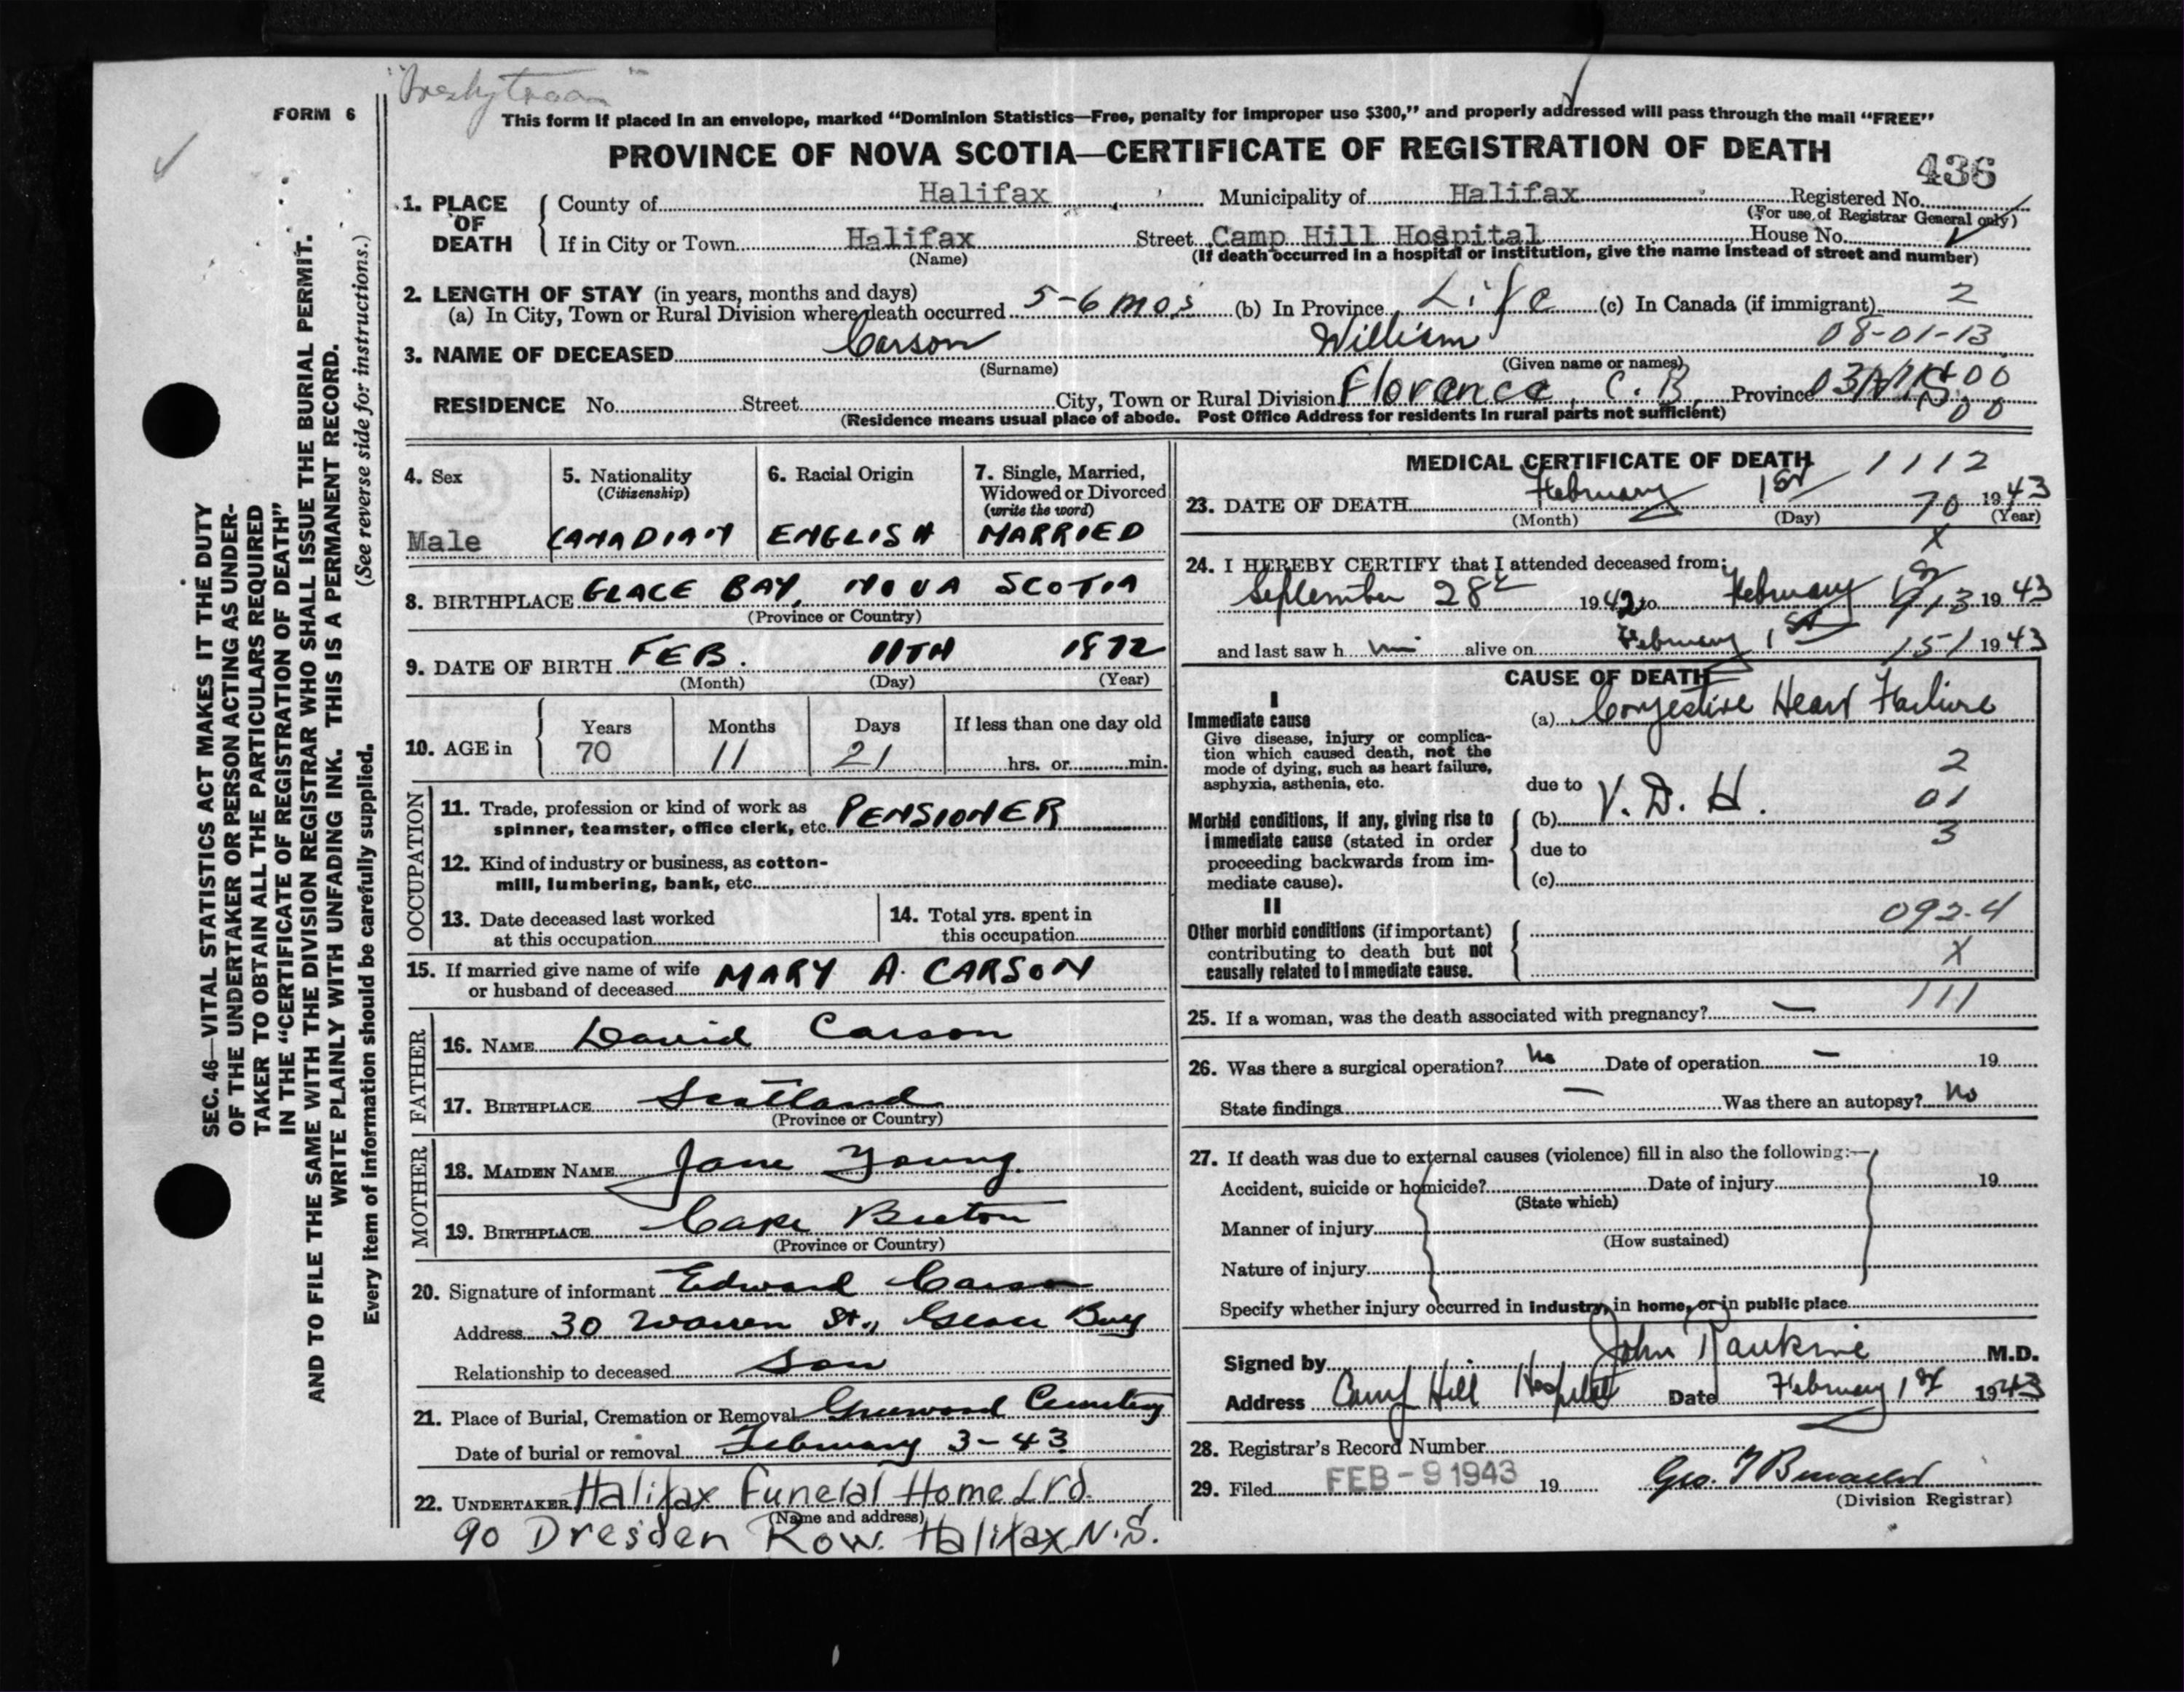 "Presbyterian"
FORM 6
This form if placed in an envelope, marked "Dominion Statistics—Free, penalty for improper use $300," and properly addressed will pass through the mail "FREE"
PROVINCE OF NOVA SCOTIA—CERTIFICATE OF REGISTRATION OF DEATH
436
1. PLACE OF DEATH
County of Halifax Municipality of Halifax Registered No.
(For use of Registrar General only)
If in City or Town Halifax Street Camp Hill Hospital House No.
(Name) (If death occurred in a hospital or institution, give the name instead of street and number)
2. LENGTH OF STAY (in years, months and days)
(a) In City, Town or Rural Division where death occurred 5-6 mos (b) In Province Life (c) In Canada (if immigrant) 2
3. NAME OF DECEASED Carson William 08-01-13
(Surname) (Given name or names)
RESIDENCE No. Street City, Town or Rural Division Florence, C.B. Province N.S.
(Residence means usual place of abode. Post Office Address for residents in rural parts not sufficient)
4. Sex Male
5. Nationality (Citizenship) CANADIAN
6. Racial Origin ENGLISH
7. Single, Married, Widowed or Divorced (write the word) MARRIED
8. BIRTHPLACE GLACE BAY, NOVA SCOTIA
(Province or Country)
9. DATE OF BIRTH FEB. 11TH 1872
(Month) (Day) (Year)
10. AGE in Years 70 Months 11 Days 21 If less than one day old hrs. or min.
OCCUPATION
11. Trade, profession or kind of work as spinner, teamster, office clerk, etc. PENSIONER
12. Kind of industry or business, as cotton-mill, lumbering, bank, etc.
13. Date deceased last worked at this occupation
14. Total yrs. spent in this occupation
15. If married give name of wife or husband of deceased MARY A. CARSON
FATHER
16. NAME David Carson
17. BIRTHPLACE Scotland
(Province or Country)
MOTHER
18. MAIDEN NAME Jane Young
19. BIRTHPLACE Cape Breton
(Province or Country)
20. Signature of informant Edward Carson
Address 30 Warren St., Glace Bay
Relationship to deceased Son
21. Place of Burial, Cremation or Removal Greenwood Cemetery
Date of burial or removal February 3-43
22. UNDERTAKER Halifax Funeral Home Ltd.
(Name and address)
90 Dresden Row. Halifax N.S.
MEDICAL CERTIFICATE OF DEATH 1112
23. DATE OF DEATH February 1st 70 1943
(Month) (Day) (Year)
X
24. I HEREBY CERTIFY that I attended deceased from:
September 28th 1942 to February 1st 1943
and last saw him alive on February 1st 151 1943
CAUSE OF DEATH
I
Immediate cause
Give disease, injury or complication which caused death, not the mode of dying, such as heart failure, asphyxia, asthenia, etc.
(a) Congestive Heart Failure
2
due to
01
(b) V. D. H.
3
due to
(c)
Morbid conditions, if any, giving rise to immediate cause (stated in order proceeding backwards from immediate cause).
II
Other morbid conditions (if important) contributing to death but not causally related to immediate cause.
092-4
X
25. If a woman, was the death associated with pregnancy? — 111
26. Was there a surgical operation? No Date of operation — 19
State findings — Was there an autopsy? No
27. If death was due to external causes (violence) fill in also the following:—
Accident, suicide or homicide? Date of injury 19
(State which)
Manner of injury
(How sustained)
Nature of injury
Specify whether injury occurred in industry, in home, or in public place
Signed by John Rankine M.D.
Address Camp Hill Hospital Date February 1st 1943
28. Registrar's Record Number
29. Filed FEB - 9 1943 19
(Division Registrar)
SEC. 46—VITAL STATISTICS ACT MAKES IT THE DUTY
OF THE UNDERTAKER OR PERSON ACTING AS UNDER-
TAKER TO OBTAIN ALL THE PARTICULARS REQUIRED
IN THE "CERTIFICATE OF REGISTRATION OF DEATH"
AND TO FILE THE SAME WITH THE DIVISION REGISTRAR WHO SHALL ISSUE THE BURIAL PERMIT.
WRITE PLAINLY WITH UNFADING INK. THIS IS A PERMANENT RECORD.
Every item of information should be carefully supplied. (See reverse side for instructions.)